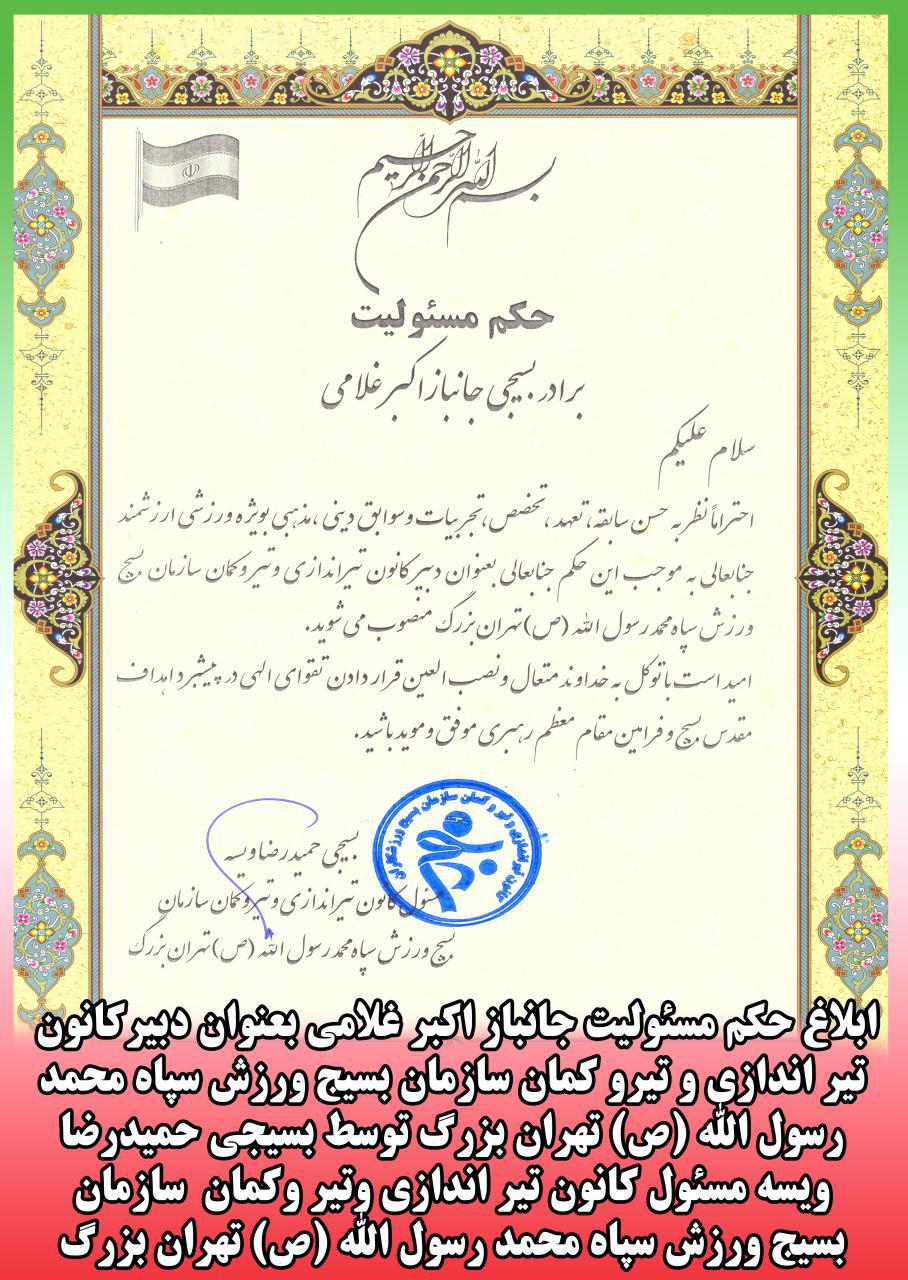 بسم الله الرحمن الرحیم
حکم مسئولیت
برادر بسیجی جانباز اکبر غلامی
سلام علیکم
احتراماً نظر به حسن سابقه، تعهد، تخصص، تجربیات و سوابق دینی، مذهبی بویژه ورزشی ارزشمند
جنابعالی به موجب این حکم جنابعالی بعنوان دبیر کانون تیراندازی و تیر و کمان سازمان بسیج
ورزش سپاه محمد رسول الله (ص) تهران بزرگ منصوب می شوید.
امید است با توکل به خداوند متعال و نصب العین قرار دادن تقوای الهی در پیشبرد اهداف
مقدس بسیج و فرامین مقام معظم رهبری موفق و موید باشید.
کانون تیر اندازی و تیر و کمان سازمان بسیج ورزشکاران
بسیجی حمیدرضا ویسه
مسئول کانون تیراندازی و تیر و کمان سازمان
بسیج ورزش سپاه محمد رسول الله (ص) تهران بزرگ
ابلاغ حکم مسئولیت جانباز اکبر غلامی بعنوان دبیرکانون
تیر اندازی و تیرو کمان سازمان بسیج ورزش سپاه محمد
رسول الله (ص) تهران بزرگ توسط بسیجی حمیدرضا
ویسه مسئول کانون تیر اندازی وتیر وکمان سازمان
بسیج ورزش سپاه محمد رسول الله (ص) تهران بزرگ